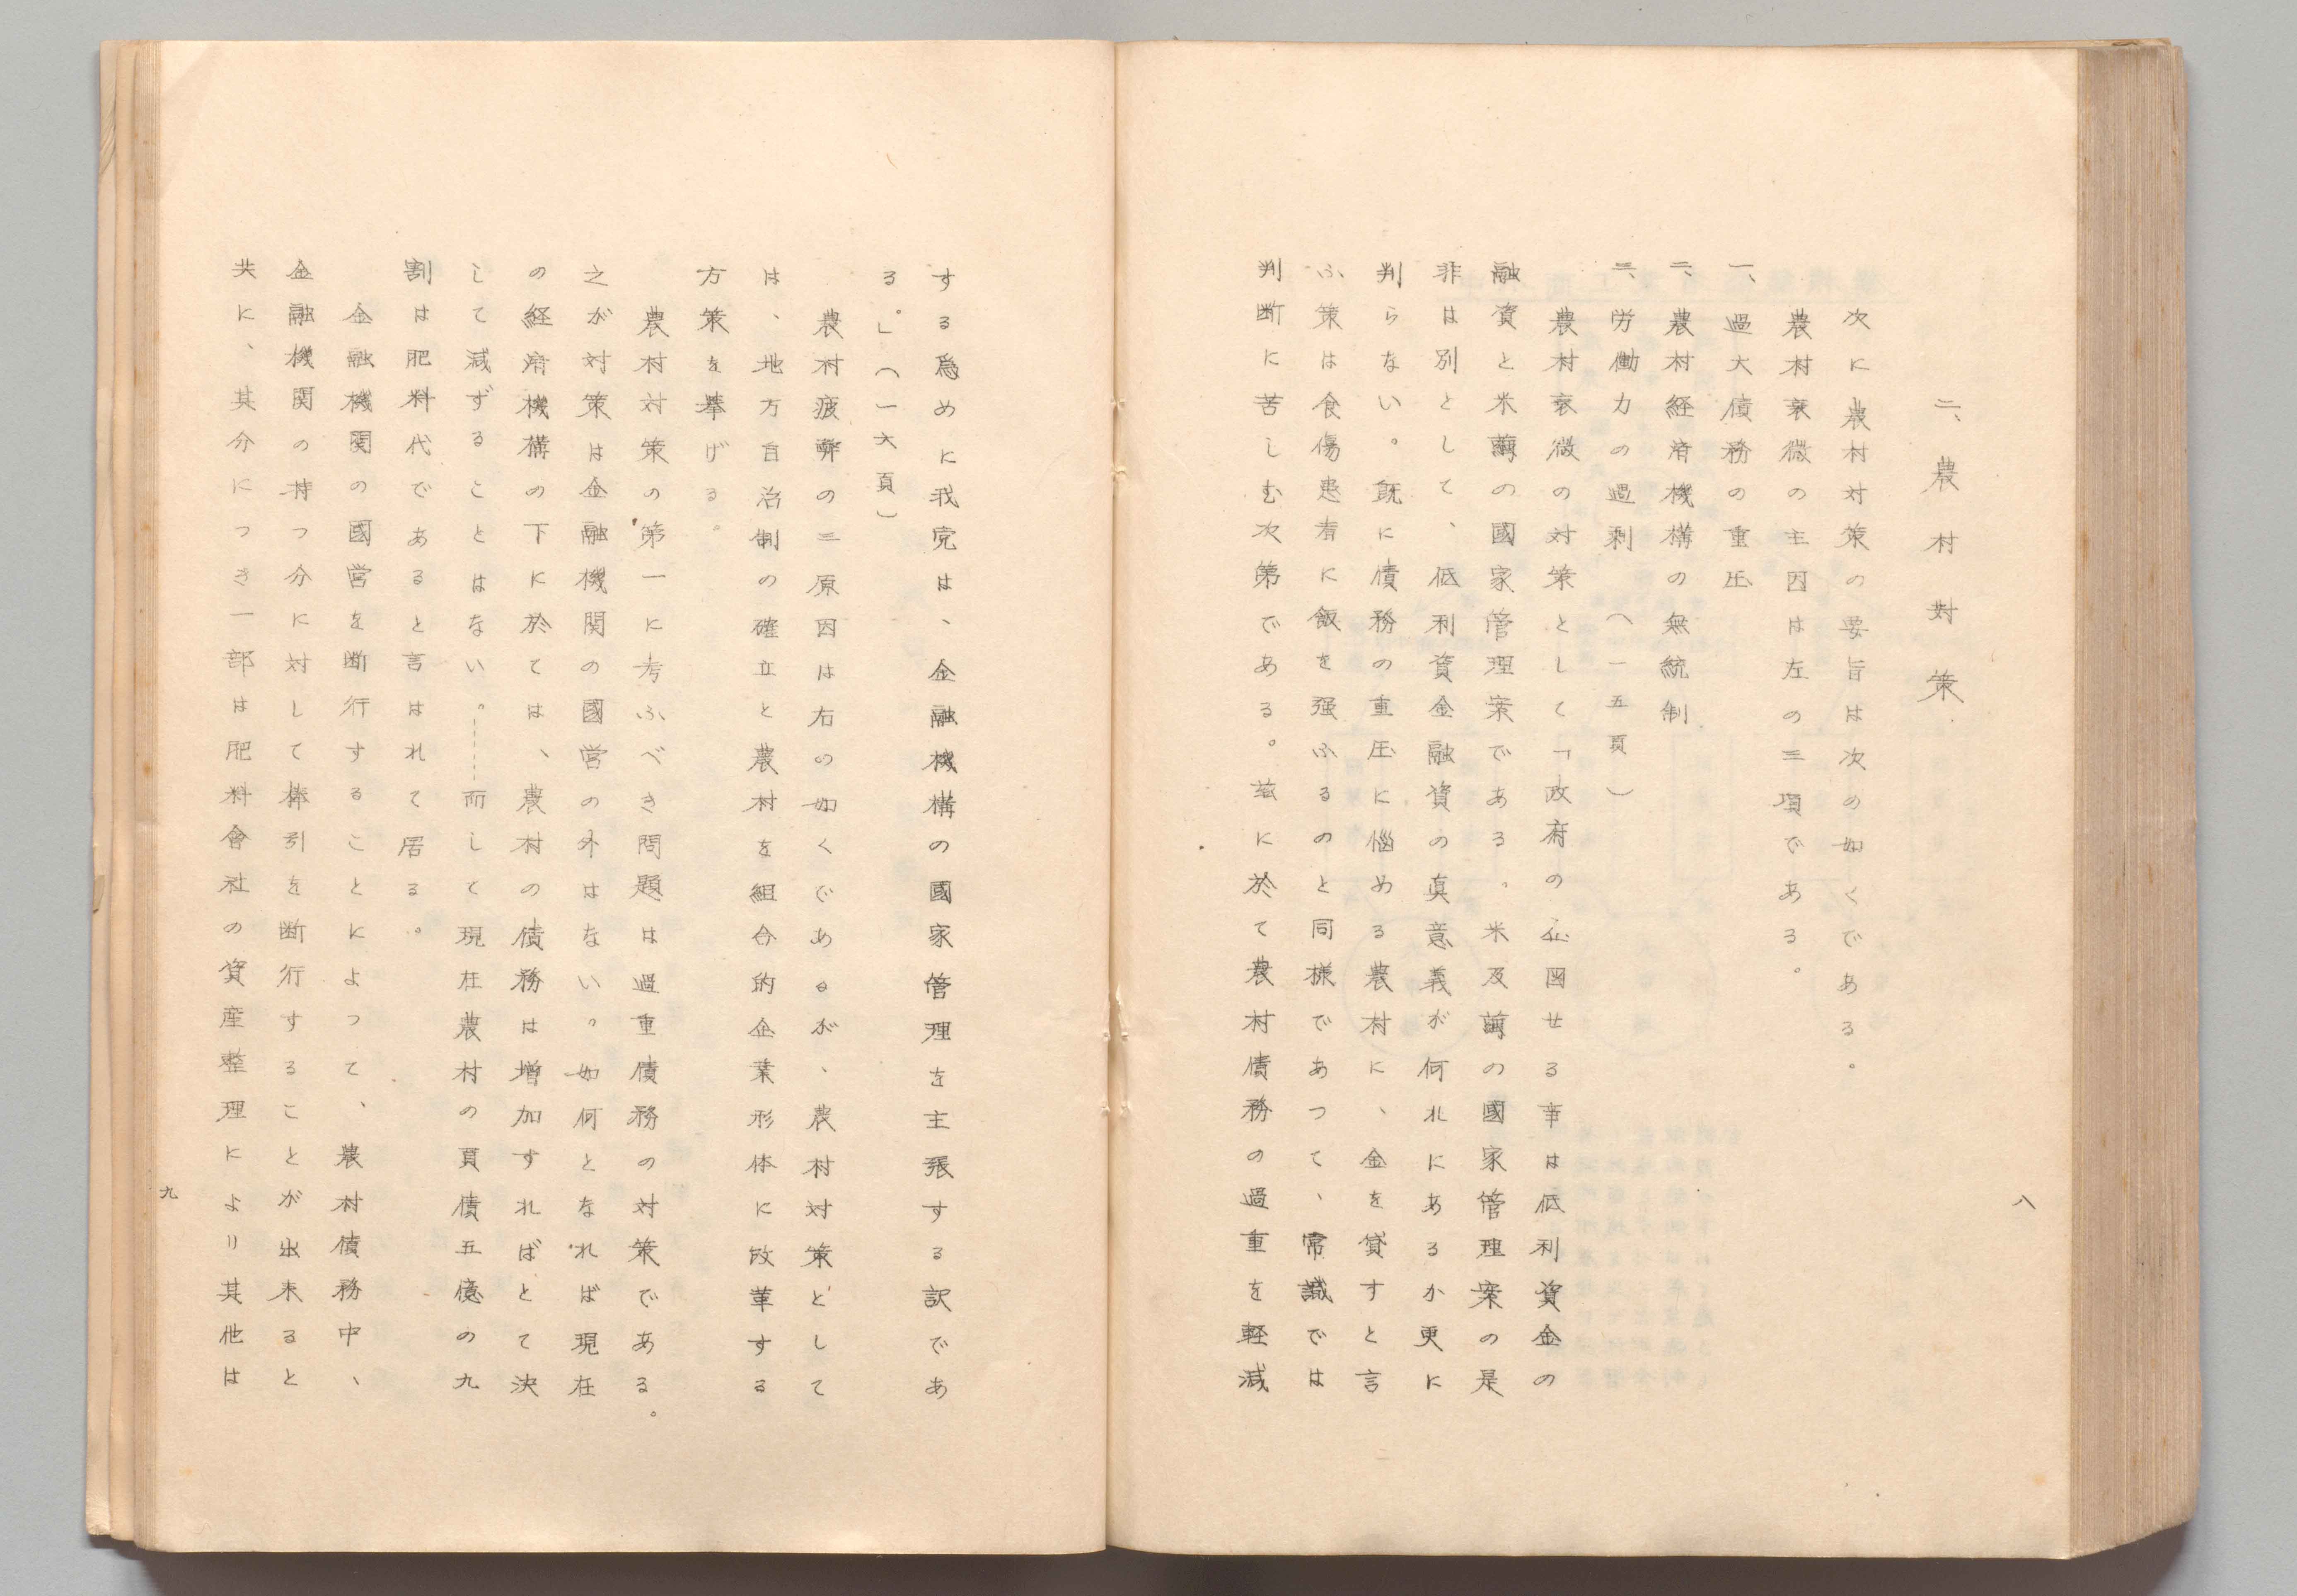 二、農村對策
次に農村対策の要旨は次の如くである。
農村衰微の主因は左の三項である。
一、過大債務の重圧
二、農村経済機構の無統制
三、労働力の過剰　（一五頁）
農村衰微の対策として「政府の企図せる事は低利資金の
融資と米繭の國家管理案である。米及繭の國家管理案の是
非は別として、低利資金融資の真意義が何れにあるか更に
判らない。既に債務の重圧に悩める農村に、金を貸すと言
ふ策は食傷患者に飯を强ふるのと同様であつて、常識では
判断に苦しむ次第である。茲に於て農村債務の過重を軽減
八
する爲めに我党は、金融機構の國家管理を主張する訳であ
る。」（一六頁）
農村疲弊の三原因は右の如くであるが、農村対策として
は、地方自治制の確立と農村を組合的企業形体に改革する
方策を挙げる。
農村対策の第一に考ふべき問題は過重債務の対策である。
之が対策は金融機関の國営の外はない。如何となれば現在
の経済機構の下に於ては、農村の債務は増加すればとて決
して減ずることはない。……而して現在農村の負債五億の九
割は肥料代であると言はれて居る。
金融機関の國営を断行することによって、農村債務中、
金融機関の持つ分に対して棒引を断行することが出来ると
共に、其分につき一部は肥料會社の資産整理により其他は
九